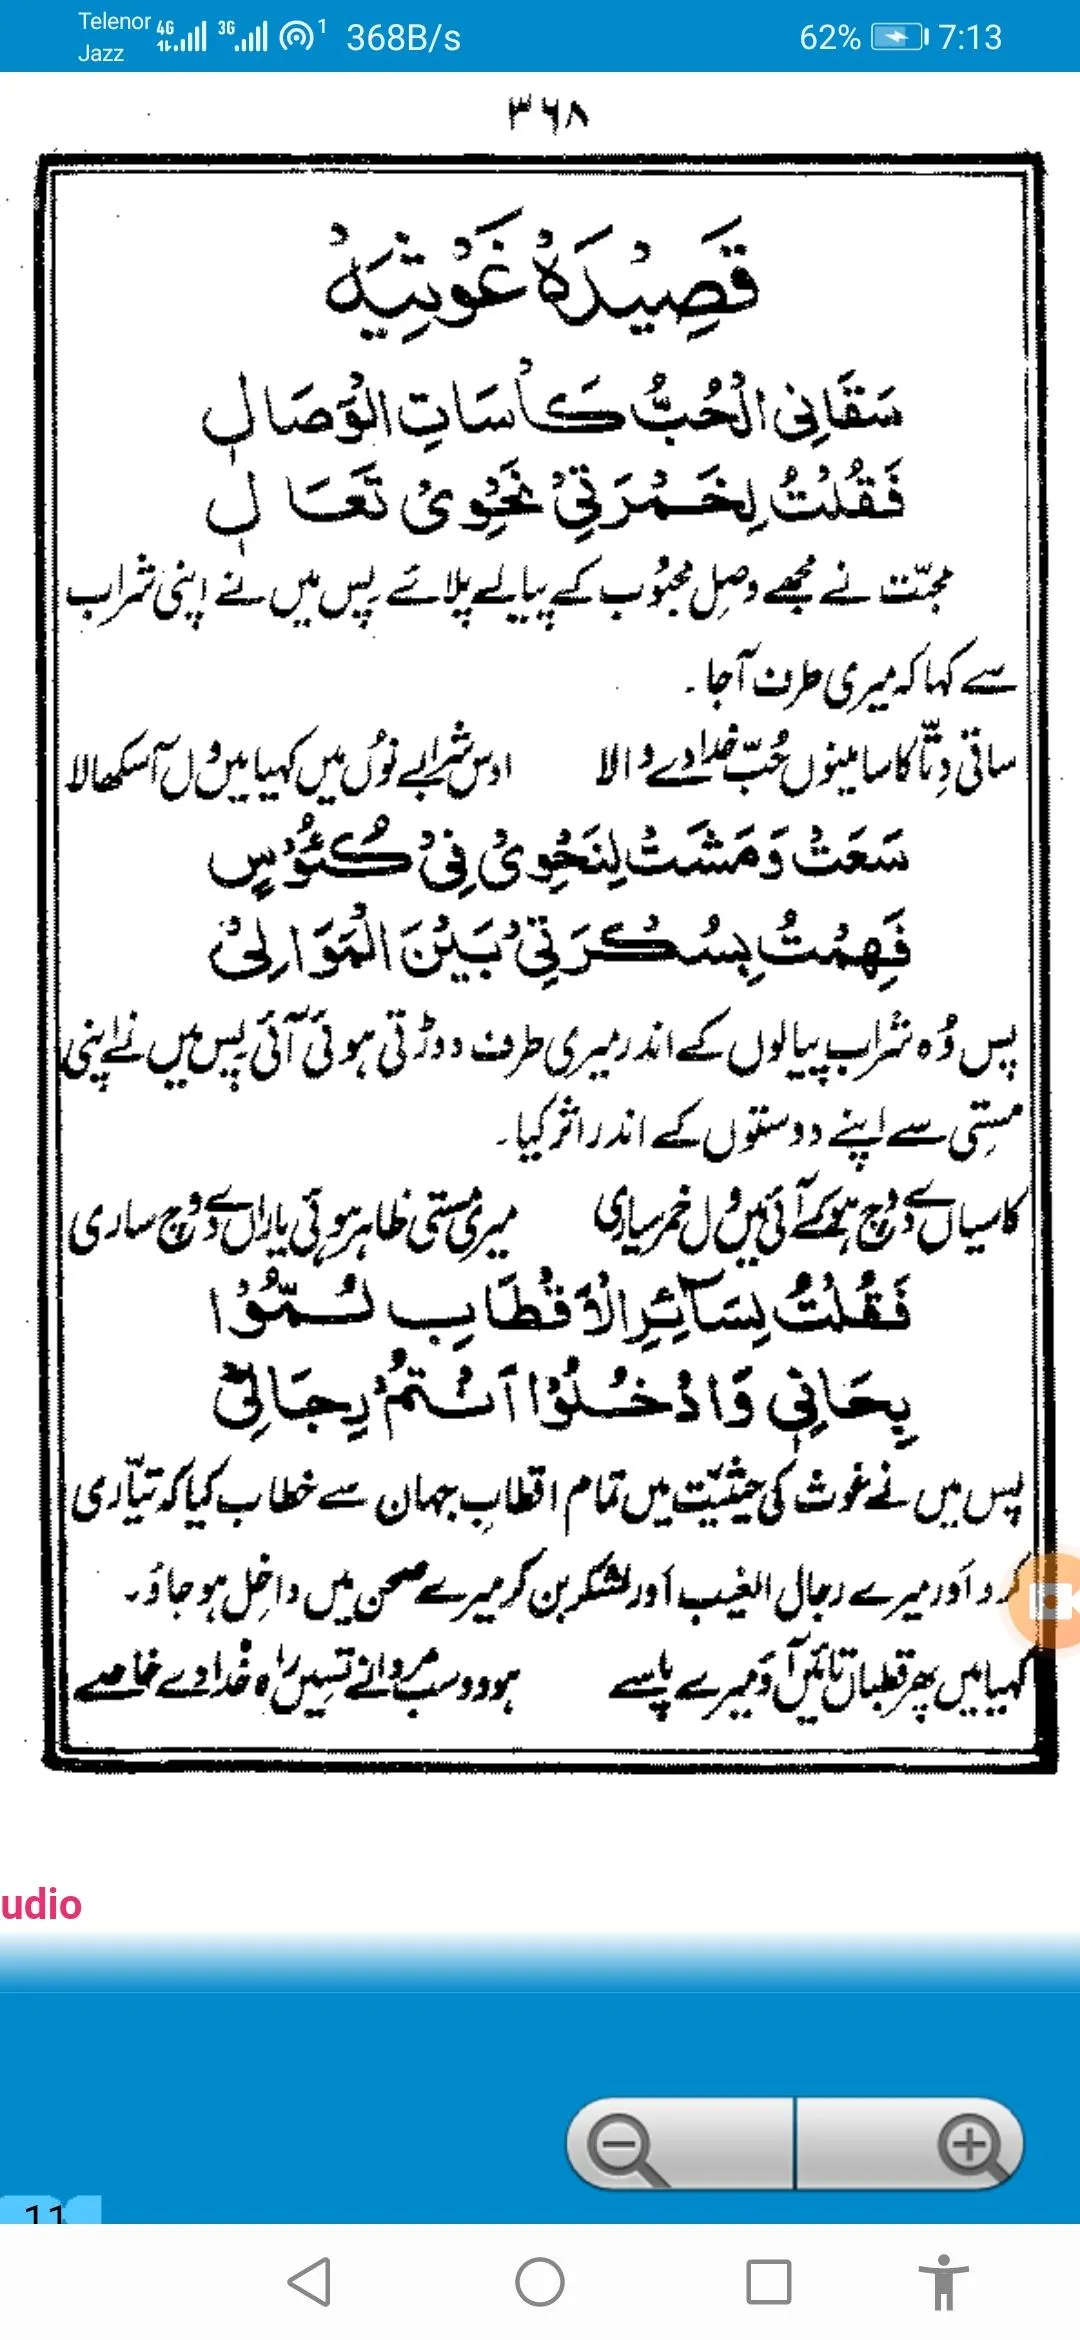 Telenor 4G 3G 1 368B/s 62% 7:13
Jazz
۳۶۸
قَصِيْدَهْ غَوْثِيَهْ
سَقَانِى الْحُبُّ كَأْسَاتِ الْوَصَالِ
فَقُلْتُ لِخَمْرَتِيْ نَحْوِىْ تَعَالِ
محبّت نے مجھے وصلِ محبُوب کے پیالے پلائے پس میں نے اپنی شراب
سے کہا کہ میری طرف آجا۔
ساقی دِتّا کاسا مینوں حُبّ خدا دے والا اوس شرابے نوں میں کہیا میں ول آ سکھالا
سَعَتْ وَمَشَتْ لِنَحْوِىْ فِىْ كُئُوْسٍ
فَهِمْتُ بِسُكْرَتِيْ بَيْنَ الْمَوَالِىْ
پس وُہ شراب پیالوں کے اندر میری طرف دوڑتی ہوئی آئی پس میں نے اپنی
مستِی سے اپنے دوستوں کے اندر اثر کیا۔
کاسیاں دے وچ ہو کے آئی میں ول خمر پیاری میری مستی ظاہر ہوئی یاراں دے وچ ساری
فَقُلْتُ لِسَآئِرِ الْاَقْطَابِ لُمُّوْا
بِحَانِىْ وَادْخُلُوْا اَنْتُمْ رِجَالِىْ
پس میں نے غوث کی حیثیّت میں تمام اقطابِ جہان سے خطاب کیا کہ تیّاری
کرو اَور میرے رجال الغیب اَور لشکر بن کر میرے صحن میں داخِل ہو جاؤ۔
کہیا میں پھر قطباں تائیں آؤ میرے پاسے ہوو و سب مردانے تسیں راہ خُدا دے خاصے
udio
11